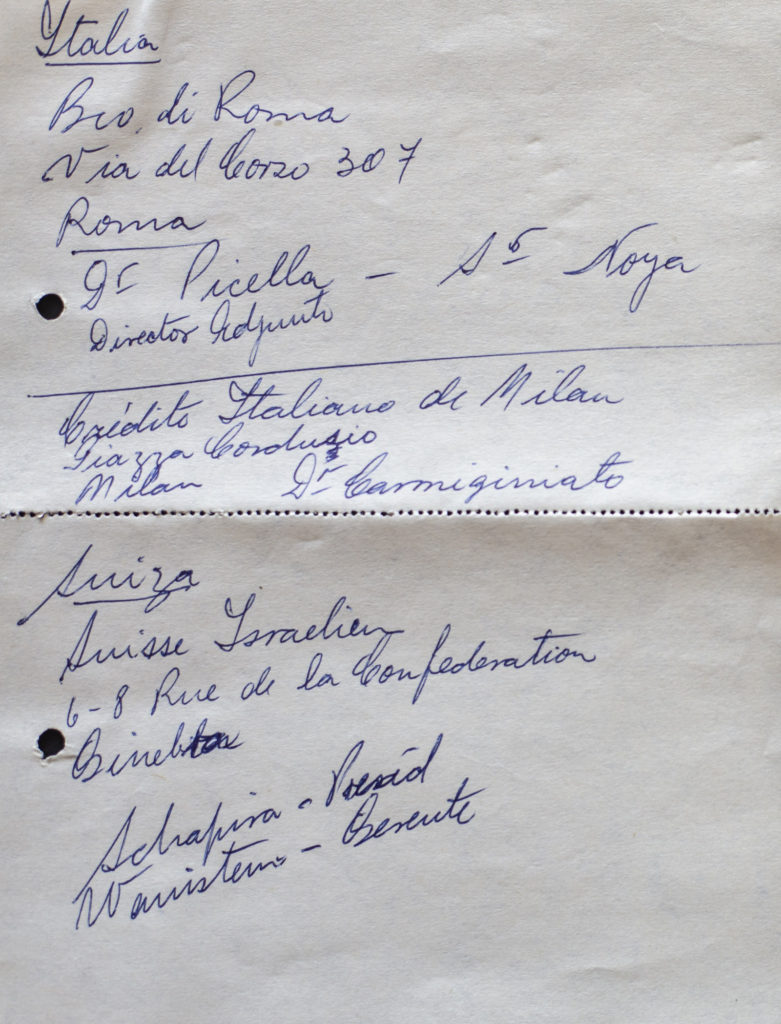 Italia
Bco. di Roma
Via del Corso 307
Roma
Dr Picella - Sr Noya
Director Adjunto
Crédito Italiano de Milan
Piazza Cordusio
Milan Dr Carmiginiato
Suiza
Suisse Israelien
6-8 Rue de la Confederation
Ginebra
Schapira - Presid
- Gerente